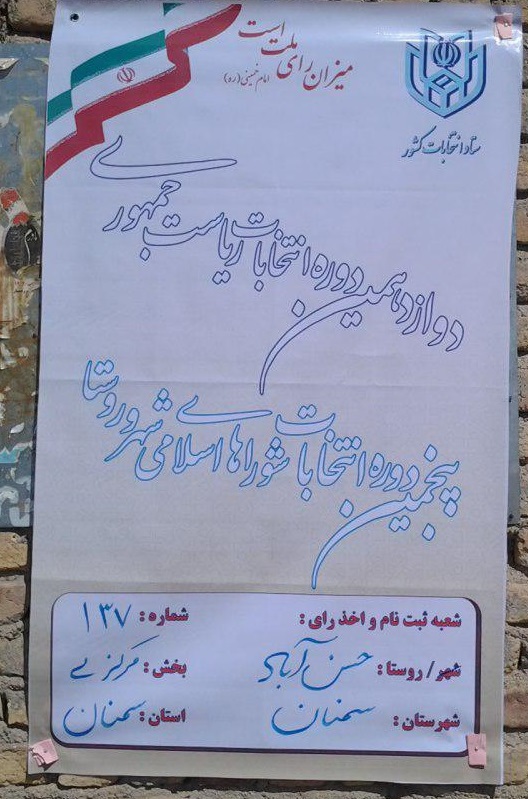 میزان رای ملت است
امام خمینی (ره)
ستاد انتخابات کشور
دوازدهمین دوره انتخابات ریاست جمهوری
پنجمین دوره انتخابات شوراهای اسلامی شهر و روستا
شعبه ثبت نام و اخذ رای : شماره : ۱۳۷
شهر / روستا : حسن آباد بخش : مرکزی
شهرستان : سمنان استان : سمنان